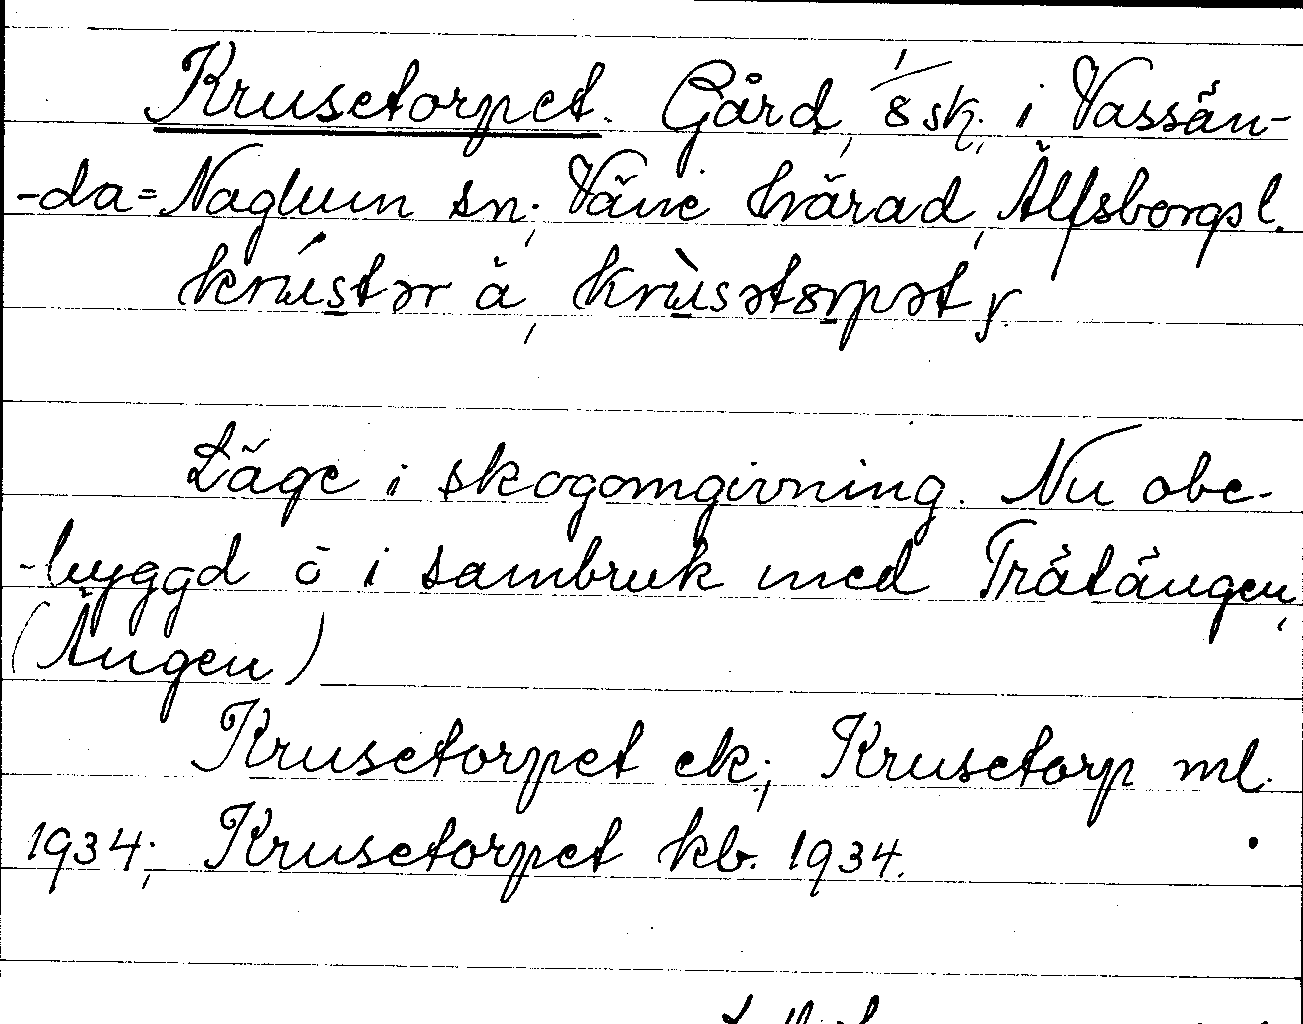 Krusetorpet. Gård, 1/8 sk. i Vassän-
-da=Naglum sn; Väne härad, Älfsborgs l.
krústər ä, krùsətɷrpət y.
Läge i skogomgivning. Nu obe-
-byggd ö i sambruk med Trätängen,
(Ängen)
Krusetorpet ek; Krusetorp ml.
1934; Krusetorpet kb. 1934.